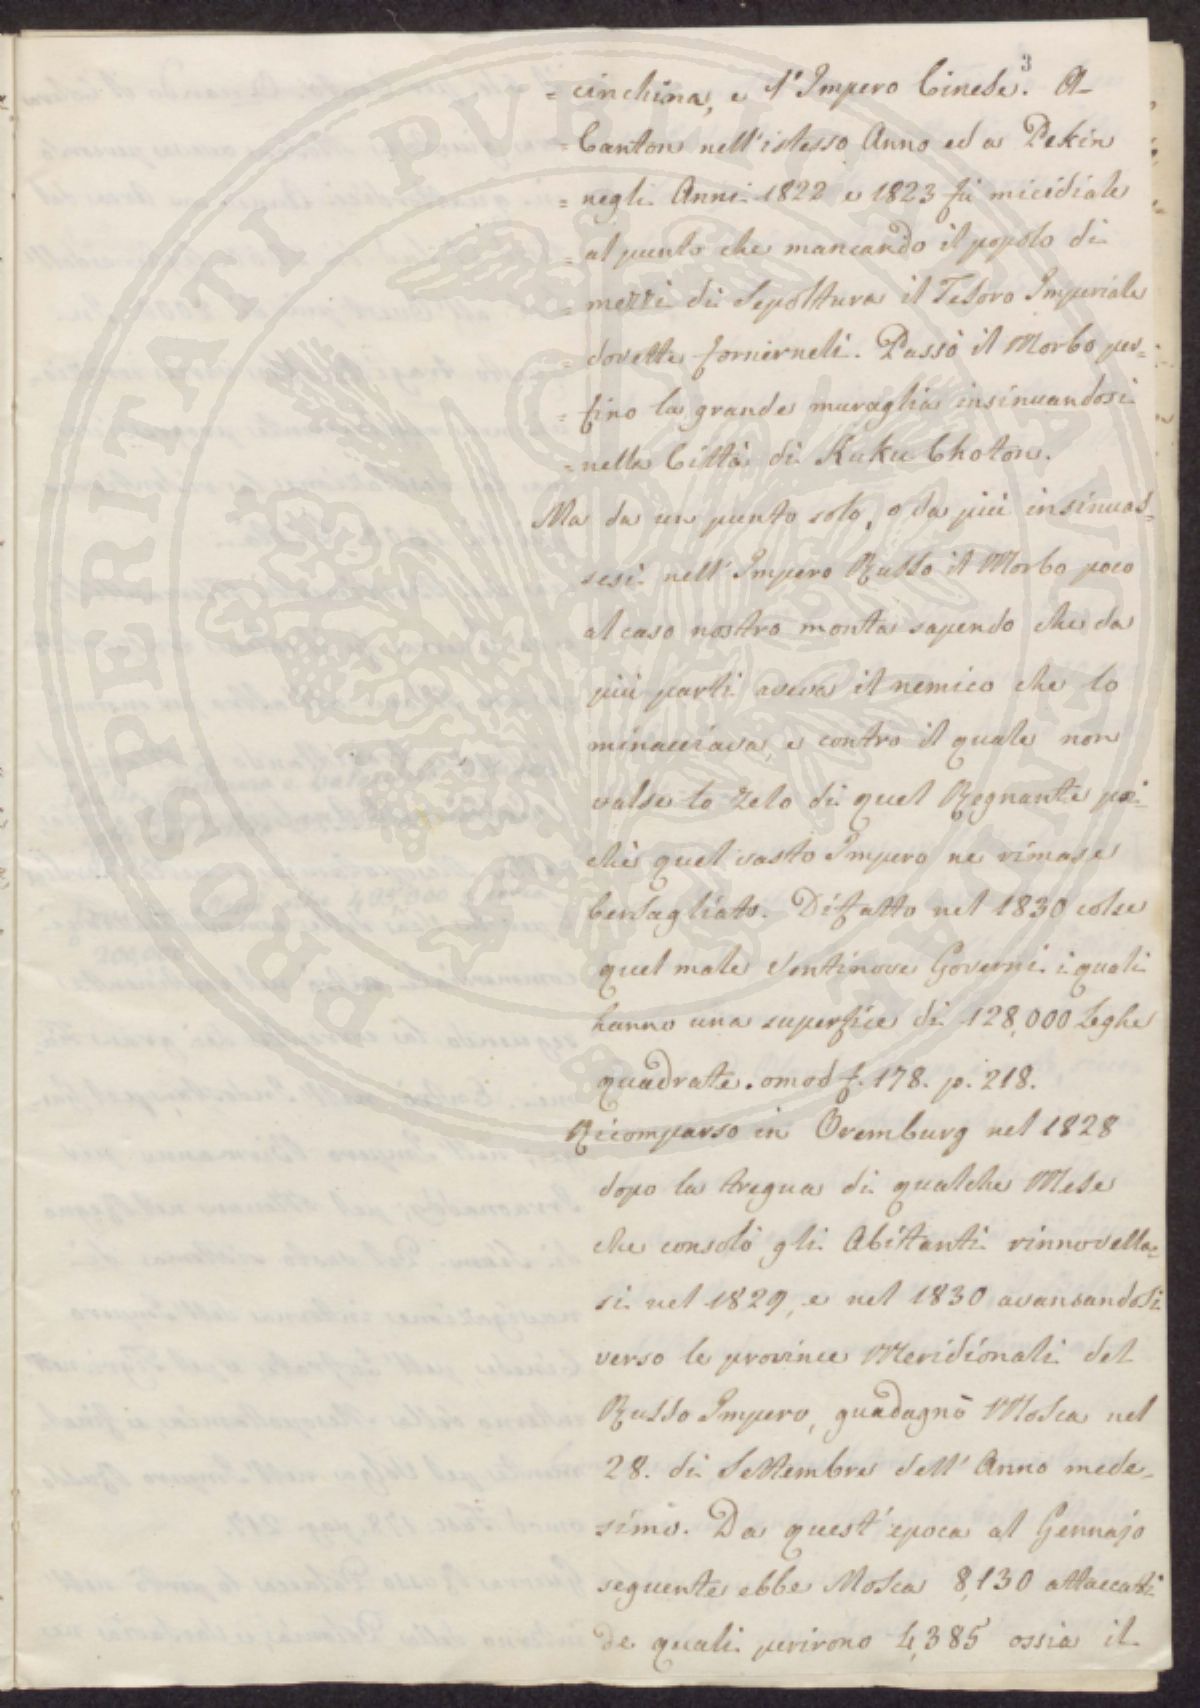 3
= cinchina, e l'Impero Cinese. A
= Canton nell'istesso Anno ed a Pekin
= negli Anni 1822 e 1823 fù micidiale
= al punto che mancando il popolo di
= mezzi di Sepoltura il Tesoro Imperiale
= dovette fornirneli. Passò il Morbo per=
= fino la grande muraglia insinuandosi
= nella Città di Kuku Choton.
Ma da un punto solo, o da più insinuas=
sesi nell'Impero Russo il Morbo poco
al caso nostro monta sapendo che da
più parti aveva il nemico che lo
minacciava, e contro il quale non
valse lo zelo di quel Regnante poi=
chè quel vasto Impero ne rimase
bersagliato. Difatto nel 1830 colse
quel male Ventinove Governi i quali
hanno una superfice di 128,000 Leghe
quadrate. omod f. 178. p. 218.
Ricomparso in Oremburg nel 1828
dopo la tregua di qualche Mese
che consolò gli Abitanti rinnovella=
si nel 1829, e nel 1830 avanzandosi
verso le province Meridionali del
Russo Impero, guadagnò Mosca nel
28. di Settembre dell'Anno mede=
simo. Da quest'epoca al Gennajo
seguente ebbe Mosca 8,130 attaccati
de quali perirono 4,385 ossia il
PROSPERITATI PUBLICAE AUGENDAE